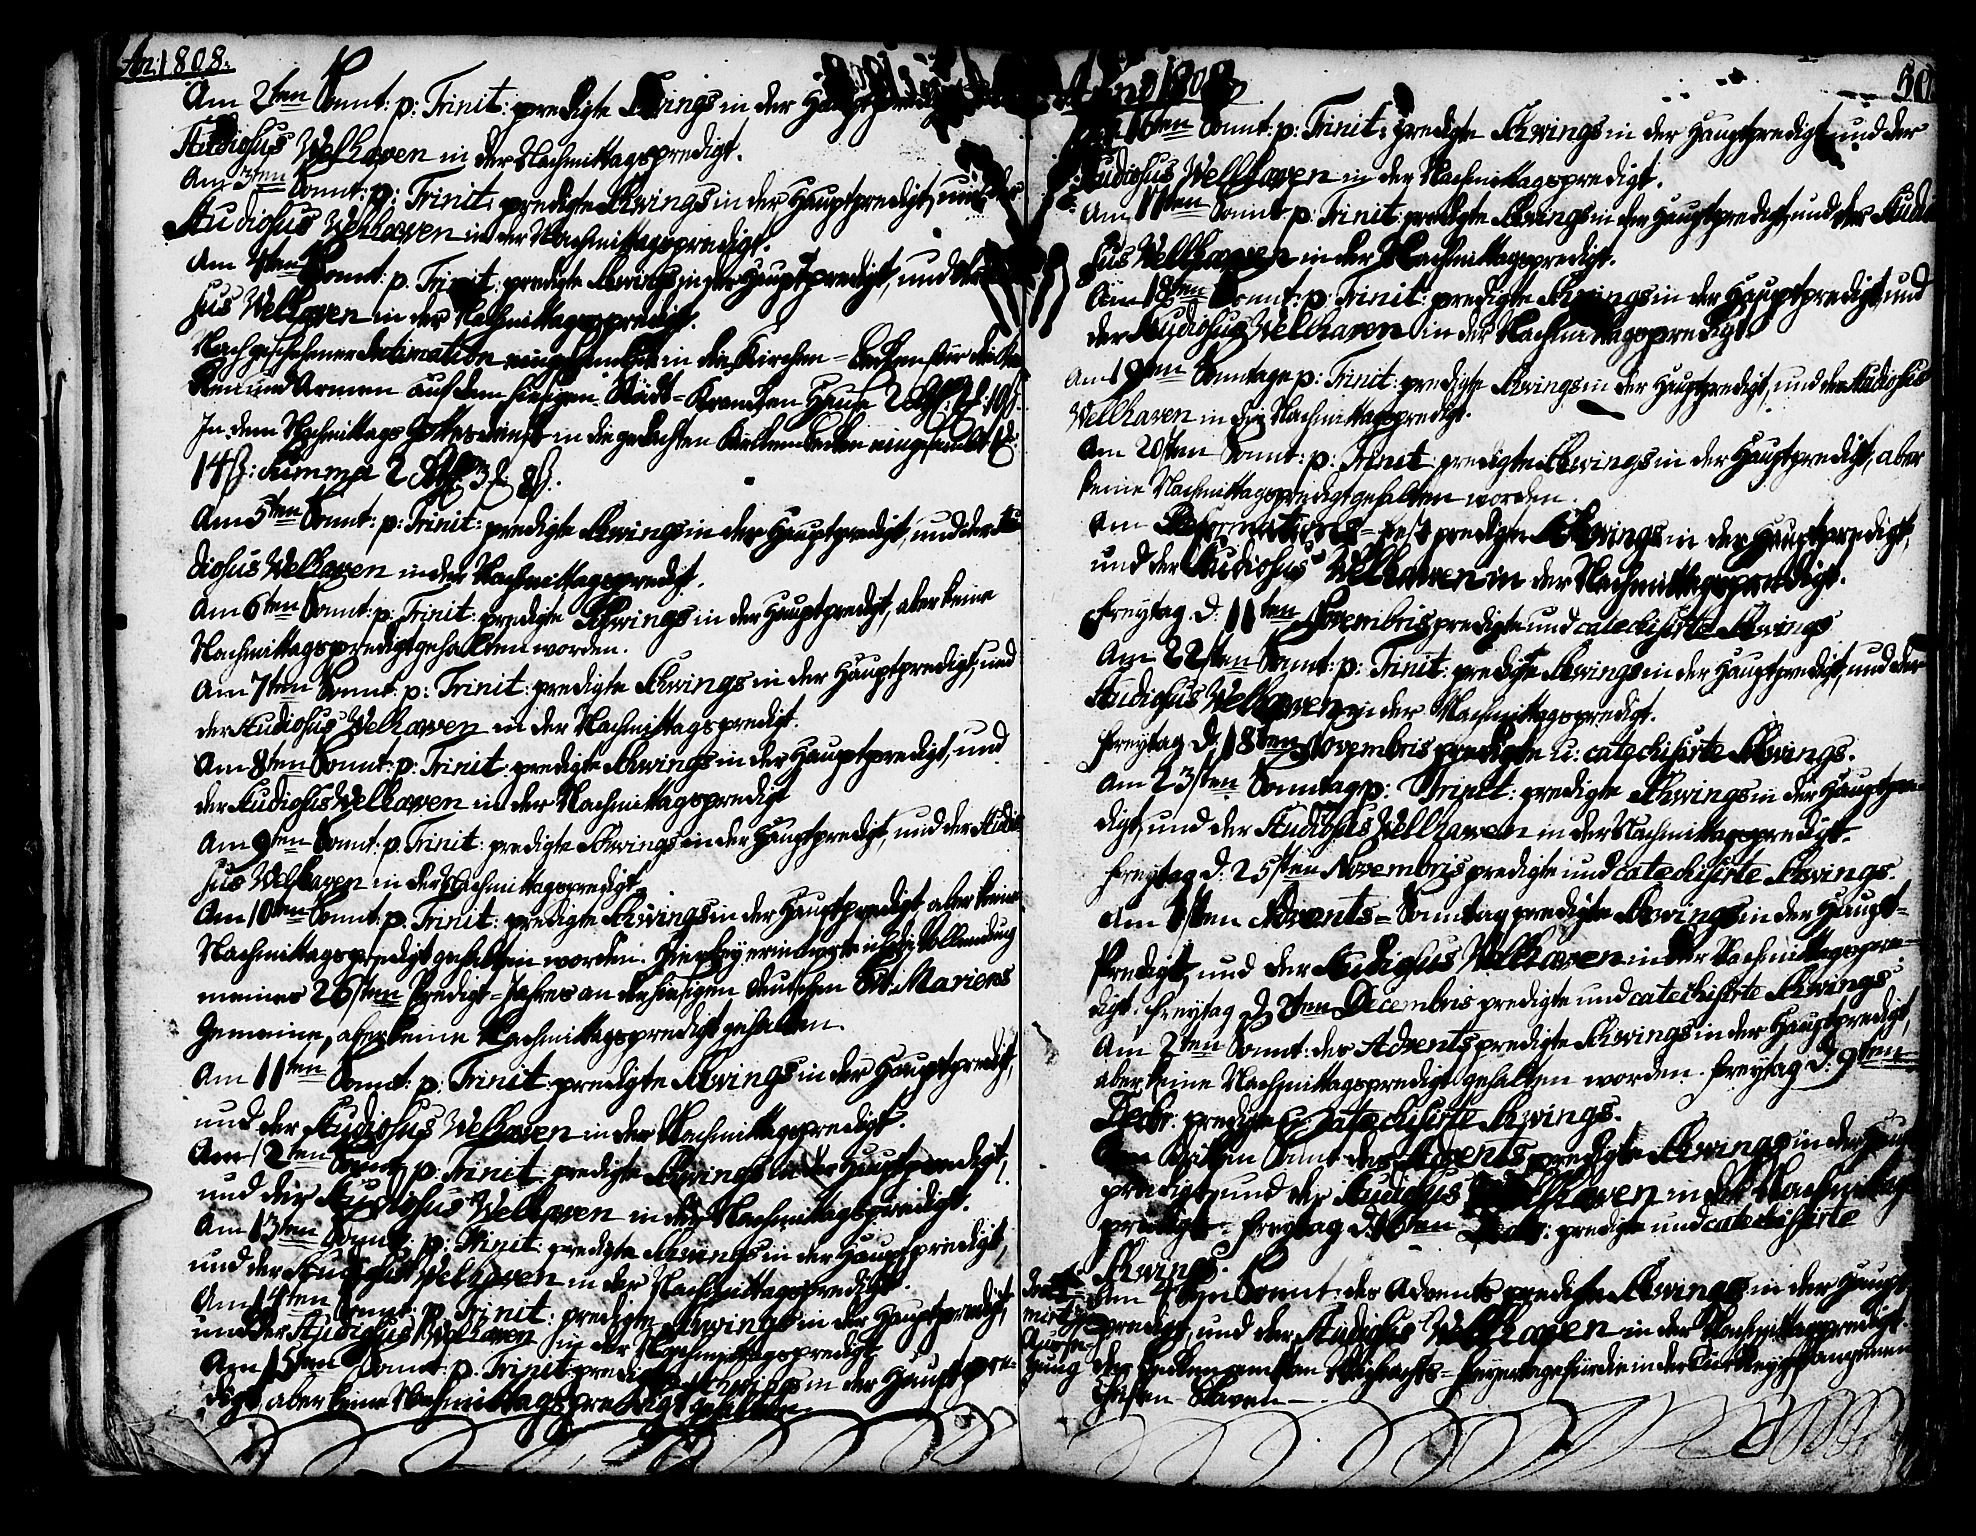 An: 1808.
Am 2ten Sonnt: p: Trinit: predigte Schwings in der Hauptpredigt
Studiosus Welhaven in der Nachmittagspredigt.
Am 3ten Sonnt: p: Trinit: predigte Schwings in der Hauptpredigt, und der
Studiosus Welhaven in der Nachmittagspredigt.
Am 4ten Sonnt: p. Trinit: predigte Schwings in der Hauptpredigt, und der
sus Welhaven in der Nachmittagspredigt.
Nach geschehener Intimation eingesamlet in die Kirchen-Becken für die
und Armen auf dem hiesigen Stadt-Krancken Hause 2
In dem Nachmittags Gottesdienst in die gedachten Kirchenbecken eingesamlet
14ß: Summa 2 Rthlr 3 8ß.
Am 5ten Sonnt: p: Trinit: predigte Schwings in der Hauptpredigt, und der Stu
diosus Welhaven in der Nachmittagspredigt.
Am 6ten Sonnt: p: Trinit: predigte Schwings in der Hauptpredigt, aber keine
Nachmittagspredigt gehalten worden.
Am 7ten Sonnt: p: Trinit: predigte Schwings in der Hauptpredigt, und
der Studiosus Welhaven in der Nachmittagspredigt.
Am 8ten Sonnt: p: Trinit: predigte Schwings in der Hauptpredigt, und
der Studiosus Welhaven in der Nachmittagspredigt
Am 9ten Sonnt: p. Trinit: predigte Schwings in der Hauptpredigt, und der Studio
sus Welhaven in der Nachmittagspredigt.
Am 10ten Sonnt: p. Trinit: predigte Schwings in der Hauptpredigt aber keine
Nachmittagspredigt gehalten worden. Hiebey erinnerte ich die Vollendung
meines 26sten Predigt-Jahres an der hiesigen deutschen St: Mariens
Gemeine, aber keine Nachmittagspredigt gehalten.
Am 11ten Sonnt: p: Trinit: predigte Schwings in der Hauptpredigt,
und der Studiosus Welhaven in der Nachmittagspredigt.
Am 12ten Sonnt: p: Trinit: predigte Schwings in der Hauptpredigt,
und der Studiosus Welhaven in der Nachmittagspredigt.
Am 13ten Sonnt: p: Trinit: predigte Schwings in der Hauptpredigt,
und der Studiosus Welhaven in der Nachmittagspredigt.
Am 14ten Sonnt: p: Trinit: predigte Schwings in der Hauptpredigt,
und der Studiosus Welhaven in der Nachmittagspredigt.
Am 15ten Sonnt: p. Trinit: predigte Schwings in der Hauptpre-
digt, aber keine Nachmittagspredigt gehalten.
Anno 1808
50
Am 16ten Sonnt: p: Trinit: predigte Schwings in der Hauptpredigt, und der
Studiosus Welhaven in der Nachmittagspredigt.
Am 17ten Sonnt: p: Trinit: predigte Schwings in der Hauptpredigt, und der Studio
sus Welhaven in der Nachmittagspredigt.
Am 18ten Sonnt: p: Trinit: predigte Schwings in der Hauptpredigt, und
der Studiosus Welhaven in der Nachmittagspredigt.
Am 19ten Sonntage p: Trinit: predigte Schwings in der Hauptpredigt, und der Studiosus
Welhaven in der Nachmittagspredigt.
Am 20sten Sonnt: p: Trinit: predigte Schwings in der Hauptpredigt, aber
keine Nachmittagspredigt gehalten worden.
Am Reformations-Fest predigte Schwings in der Hauptpredigt,
und der Studiosus Welhaven in der Nachmittagspredigt.
Freytag d: 11ten Novembris predigte und catechisirte Schwings
Am 22sten Sonnt: p: Trinit: predigte Schwings in der Hauptpredigt, und der
Studiosus Welhaven in der Nachmittagspredigt.
Freytag d: 18ten Novembris predigte u: catechisirte Schwings.
Am 23sten Sonntag p: Trinit: predigte Schwings in der Hauptpre-
digt, und der Studiosus Welhaven in der Nachmittagspredigt.
Freytag d: 25sten Novembris predigte und catechisirte Schwings.
Am 1sten Advents-Sonntag predigte Schwings in der Haupt-
Predigt, und der Studiosus Welhaven in der Nachmittagspre-
digt. Freytag d: 2ten Decembris predigte und catechisirte Schwings
Am 2ten Sonnt: des Advents predigte Schwings in der Hauptpredigt,
aber keine Nachmittagspredigt gehalten worden. Freytag d: 9ten
Decbr: predigte u: catechisirte Schwings.
Am dritten Sonnt: des Advents predigte Schwings in der Haupt
predigt, und der Studiosus Welhaven in der Nachmittags
predigt. Freytag d: 16ten Decbr: predigte und catechisirte
Schwings.
Am 4ten Sonnt: des Advents predigte Schwings in der Haupt
predigt, und der Studiosus Welhaven in der Nachmittagspredigt.
der Becken am Weihnachts-Feyertage für die in der Türkey gefangenen
Christen Slaven—.